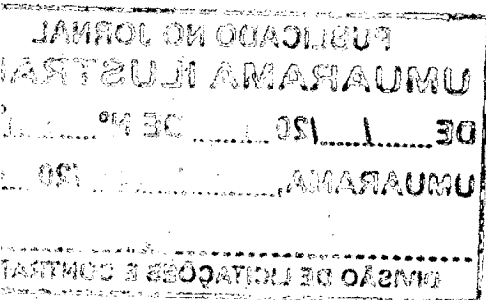 PUBLICADO NO JORNAL
UMUARAMA ILUSTRA
DE ...../...../20 ..... DE Nº .....
UMUARAMA, ..... /20 .....
DIVISÃO DE LICITAÇÕES E CONTRAT